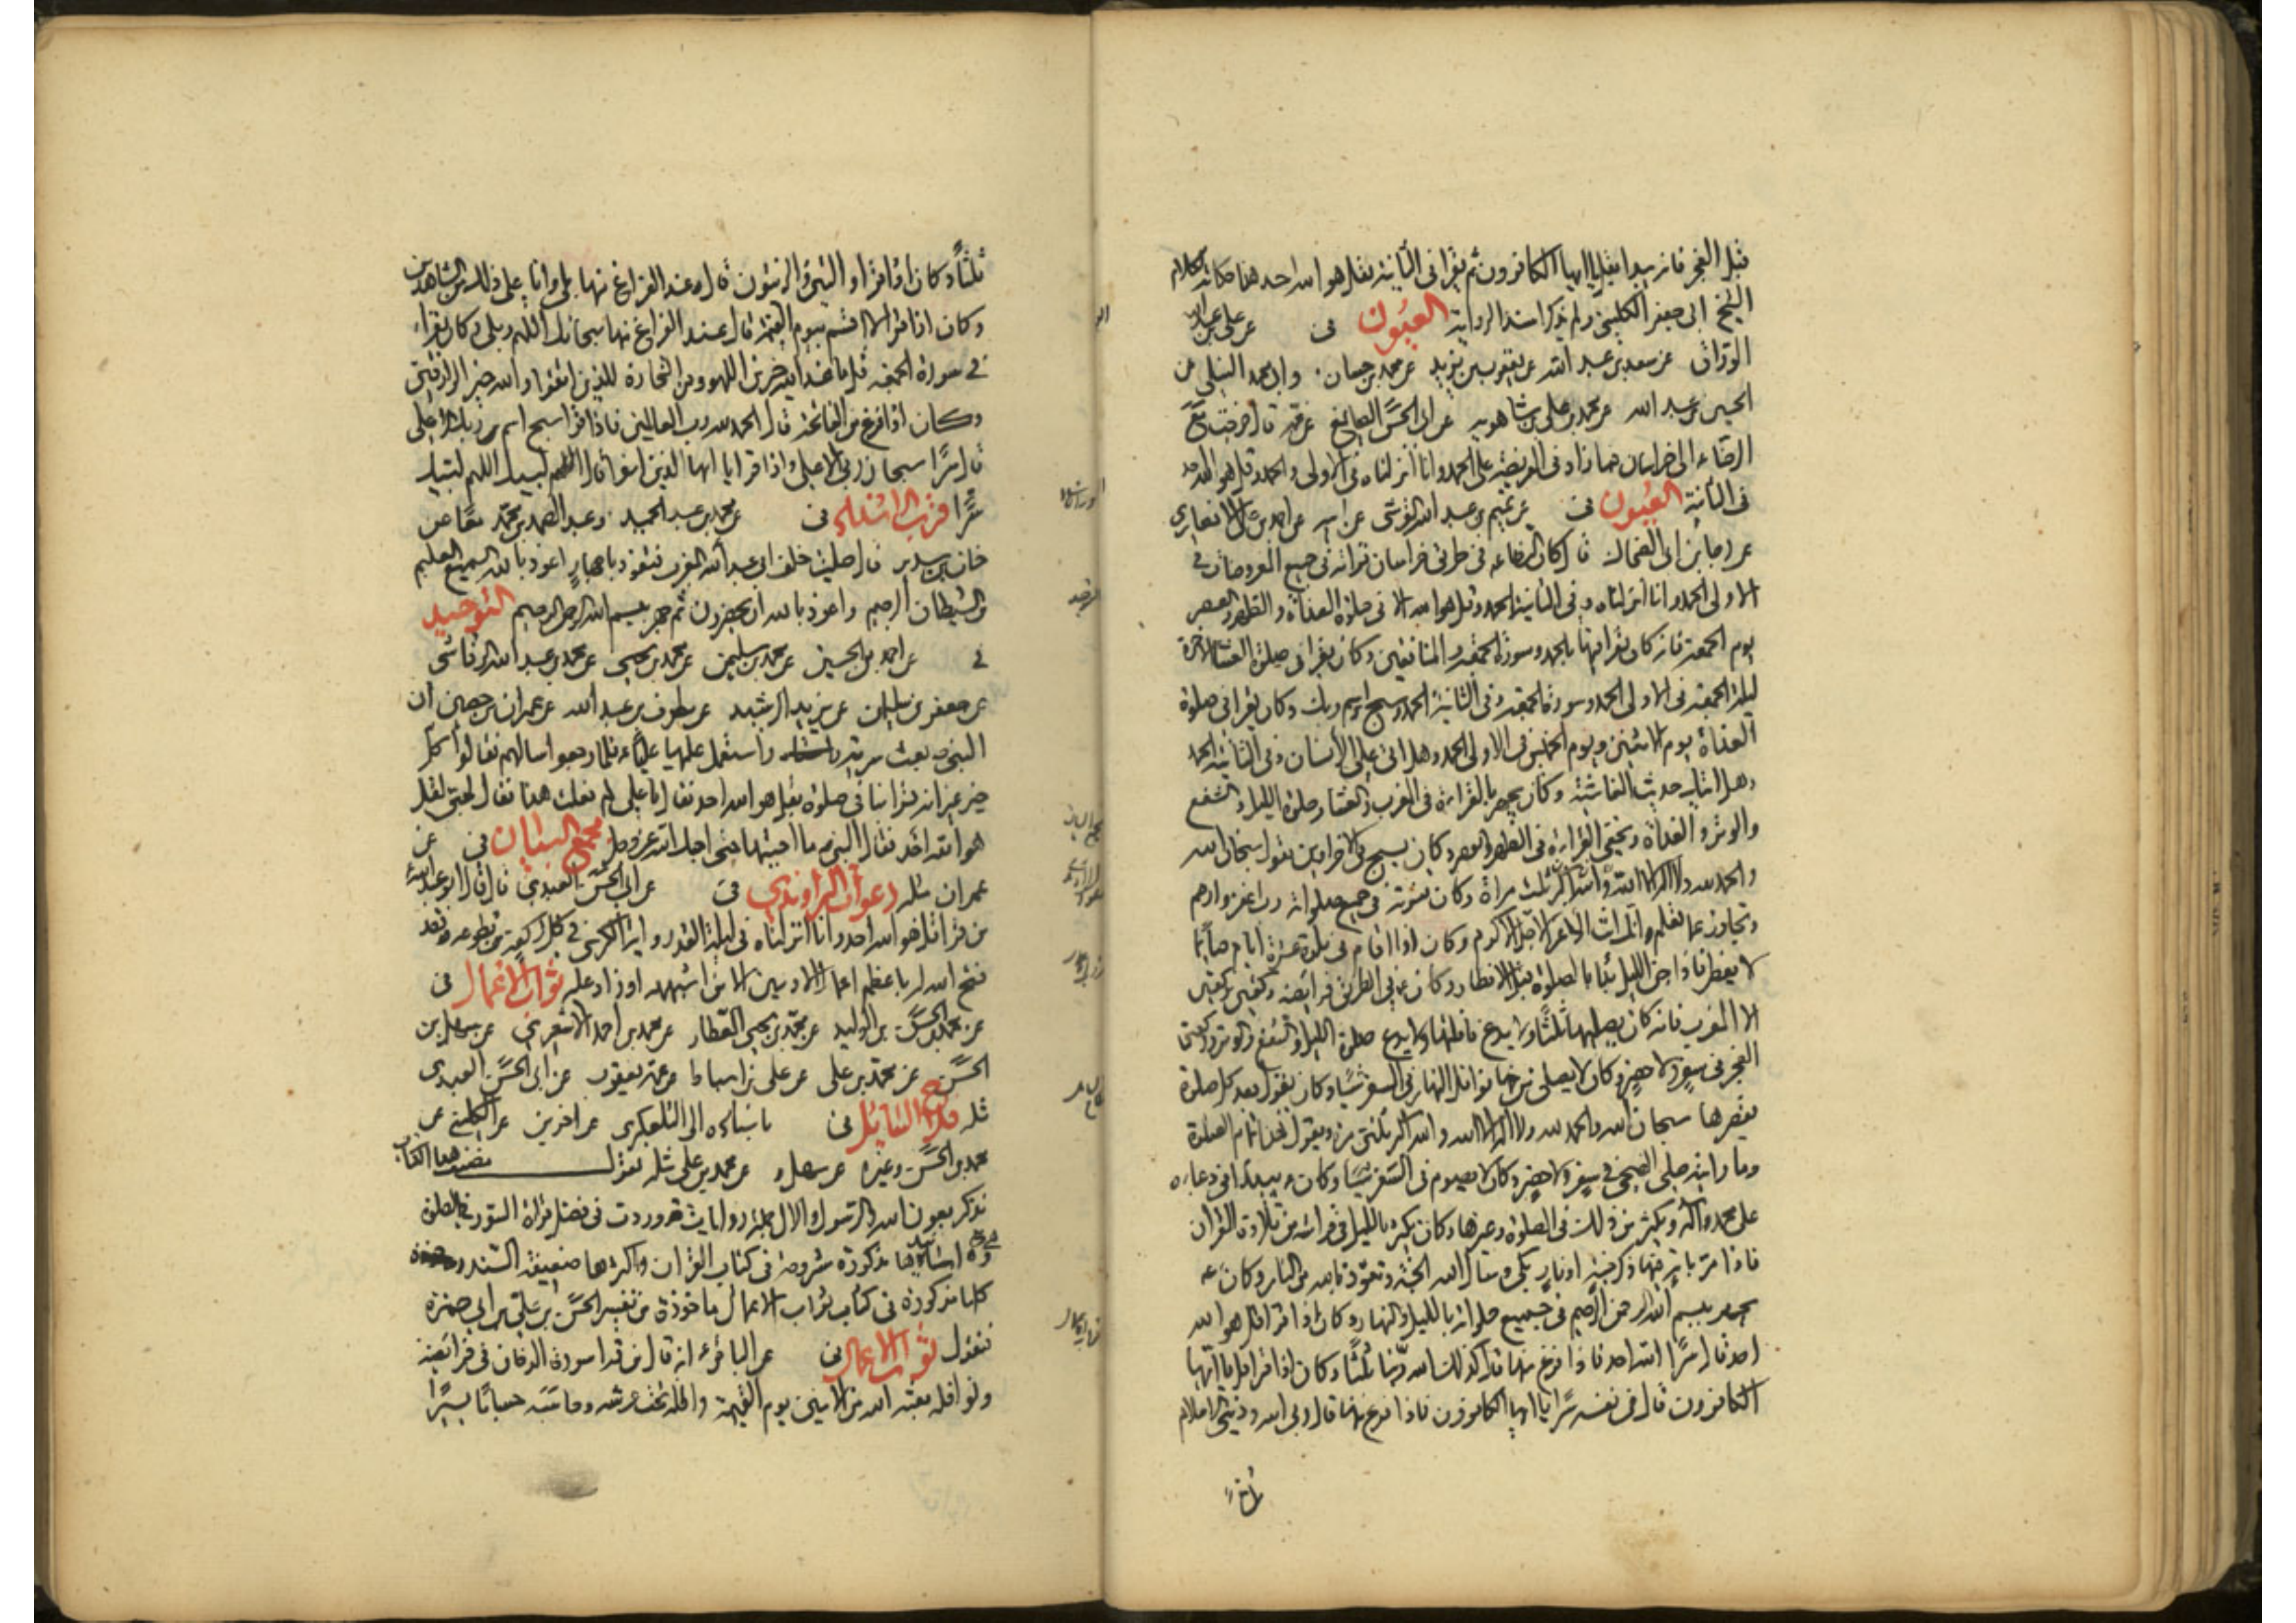 قبل الفجر فانه يبدا بقل يا ايها الكافرون ثم يقرا فى الثانية بقل هو الله احد هذا حكاية كلام
الشيخ ابى جعفر الكلينى ولم يذكر اسناد الرواية العيون فى عن على بن عبد الله
الورّاق عن سعد بن عبد الله عن يعقوب بن يزيد عن محمد بن حسان وابى محمد النيلى عن
الحسين بن عبد الله عن محمد بن على بن شاهويه عن ابى الحسن الصايغ عن عمه قال خرجت مع
الرضاء الى خراسان فما زاد فى الفريضة على الحمد وانا انزلناه فى الاولى والحمد وقل هو الله احد
فى الثانية العيون فى عن تميم بن عبد الله القرشى عن ابيه عن احمد بن على الانصارى
عن رجا بن ابى الضحاك قال كان الرضا ع فى طريق خراسان قراته فى جميع المفروضات فى
الاولى الحمد وانا انزلناه وفى الثانية الحمد وقل هو الله الا فى صلوة الغداة والظهر والعصر
يوم الجمعة فانه كان يقرا فيها بالحمد وسورة الجمعة والمنافقين وكان يقرا فى صلوة العشا الاخرة
ليلة الجمعة فى الاولى الحمد وسورة الجمعة وفى الثانية الحمد وسبح اسم ربك وكان يقرا فى صلوة
الغداة يوم الاثنين ويوم الخميس فى الاولى الحمد وهل اتى على الانسان وفى الثانية الحمد
وهل اتيك حديث الغاشية وكان يجهر بالقراءة فى المغرب والعشا وصلوة الليل والشفع
والوتر والغداة ويخفى القراءة فى الظهر والعصر وكان يسبح فى الاخراوين يقول سبحان الله
والحمد لله ولا اله الا الله والله اكبر ثلث مراة وكان قنوته فى جميع صلواته رب اغفر وارحم
وتجاوز عما تعلم انك انت الاعز الاجل الاكرم وكان اذا اقام فى بلدة عشرة ايام صائما
لا يفطر فاذا جن الليل بدا بالصلوة قبل الافطار وكان فى الطريق فرايضه ركعتين ركعتين
الا المغرب فانه كان يصليها ثلثا ولا يدع نافلتها ولا يدع صلوة الليل والشفع والوتر وركعتى
الفجر فى سفر ولا حضر وكان لا يصلى من نوافل النهار فى السفر شيئا وكان يقول بعد كل صلوة
يقصرها سبحان الله والحمد لله ولا اله الا الله والله اكبر ثلثين مرة ويقول هذا تمام الصلوة
وما رايته صلى الضحى فى سفر ولا حضر وكان لا يصوم فى السفر شيئا وكان ع يبدا فى دعائه
على محمد وآله ويكثر من ذلك فى الصلوة وغيرها وكان يكثر بالليل فى فراشه من تلاوة القران
فاذا مرّ باية فيها ذكر جنة او نار بكى وسال الله الجنة وتعوذ بالله من النار وكان ع
يجهر ببسم الله الرحمن الرحيم فى جميع صلواته بالليل والنهار وكان اذا قرا قل هو الله
احد قال سرّا الله احد فاذا فرغ منها قال كذلك الله ربنا ثلثا وكان اذا قرا قل يا ايها
الكافرون قال فى نفسه سرا يا ايها الكافرون فاذا فرغ منها قال ربى الله ودينى الاسلام
ثلثاً وكان اذا قرا والتين والزيتون قال عند الفراغ منها بلى وانا على ذلك من الشاهدين
وكان اذا قرا لا اقسم بيوم القيمة قال عند الفراغ منها سبحانك اللهم وبلى وكان يقرا
فى سورة الجمعة قل ما عند الله خير من اللهو ومن التجارة للذين اتقوا والله خير الرازقين
وكان اذا فرغ من الفاتحة قال الحمد لله رب العالمين فاذا قرا سبح اسم ربك الاعلى
قال سرّا سبحان ربى الاعلى واذا قرا يا ايها الذين امنوا قال لبيك اللهم لبيك
سرّا قرب الاسناد فى عن محمد بن عبد الحميد وعبد الصمد بن محمد معا عن
حنان بن سدير قال صليت خلف ابى عبد الله المغرب فتعوذ باجهار اعوذ بالله السميع العليم
من الشيطان الرجيم واعوذ بالله ان يحضرون ثم جهر ببسم الله الرحمن الرحيم التوحيد
فى عن احمد بن الحسين عن محمد بن سليمن عن محمد بن يحيى عن محمد بن عبد الله الرقاشى
عن جعفر بن سليمن عن يزيد الرشك عن مطرف بن عبد الله عن عمران بن حصين ان
النبى ص بعث سرية واستعمل عليها عليا ع فلما رجعوا سالهم فقالوا كل
خير غير انه قرا بنا فى صلوة بقل هو الله احد فقال يا على لم فعلت هذا فقال لحبى لقل
هو الله احد فقال النبى ص ما احببتها حتى احبك الله عز وجل مجمع البيان فى عن
عمران مثله دعوات الراوندى فى عن ابى الحسن العبدى قال قال ابو عبد الله
من قرا قل هو الله احد وانا انزلناه فى ليلة القدر واية الكرسى فى كل ركعة من تطوعه فقد
فتح الله له باعظم اعمال الادميين الا من اشبهه او زاد عليه ثواب الاعمال فى
عن محمد بن الحسن بن الوليد عن محمد بن يحيى العطار عن محمد بن احمد الاشعرى عن سهل بن
الحسن عن محمد بن على عن على بن اسباط عن عمه يعقوب عن ابى الحسن العبدى
مثله فلاح السائل فى باسناده الى التلعكبرى عن اخرين عن الكلينى عن
محمد بن الحسن وغيره عن سهل عن محمد بن على مثله نقول هذا الكتاب
نذكر بعون الله والرسول والال جملة روايات وردت فى فضل قراة السور فى الصلوة
اسانيدها مذكورة مشروحة فى كتاب القران واكثرها ضعيفة السند
كلها مذكورة فى كتاب ثواب الاعمال ماخوذة من تفسير الحسن بن على بن ابى حمزة
فنقول ثواب الاعمال فى عن الباقر ع انه قال من قرا سورة الدخان فى فرائضه
ونوافله بعثه الله من الامنين يوم القيمة واظله تحت عرشه وحاسبه حسابا يسيرا